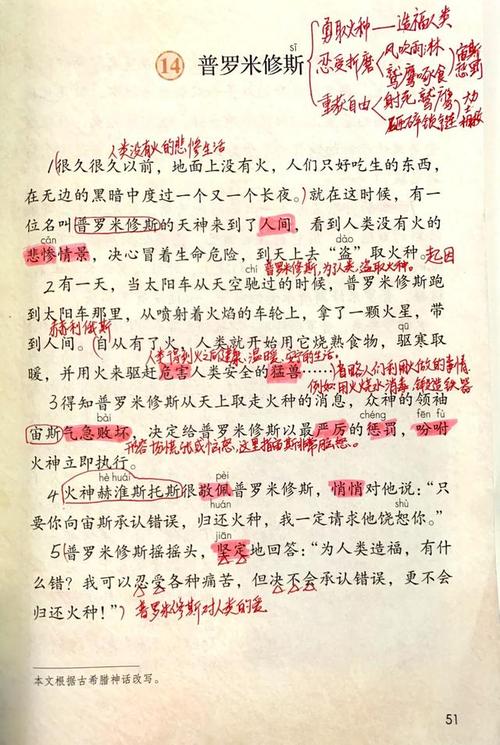 勇取火种——造福人类
忍受折磨 风吹雨淋 宙斯
鹫鹰啄食 惩罚
重获自由 射死鹫鹰 大力士
砸碎锁链 相救
sī
14 普罗米修斯
人类没有火的悲惨生活
1(很久很久以前，地面上没有火，人们只好吃生的东西，
在无边的黑暗中度过一个又一个长夜。)就在这时候，有一
位名叫普罗米修斯的天神来到了人间，看到人类没有火的
cǎn dào
悲惨情景，决心冒着生命危险，到天上去“盗”取火种。起因
chí 普罗米修斯，为了人类，盗取火种。
2有一天，当太阳车从天空驰过的时候，普罗米修斯跑
到太阳车那里，从喷射着火焰的车轮上，拿了一颗火星，带
赫利俄斯 qū
到人间。(自从有了火，人类就开始用它烧熟食物，驱寒取
人类得到火之后健康、温暖、安全的生活。
暖，并用火来驱赶危害人类安全的猛兽……(省略人们利用火做的事情
例如：用火烧水消毒、锻造铁器
3得知普罗米修斯从天上取走火种的消息，众神的领袖
bài chéng fēn fù
宙斯气急败坏，决定给普罗米修斯以最严厉的惩罚，吩咐
火神立即执行。
hè huái pèi
4火神赫淮斯托斯很敬佩普罗米修斯，悄悄对他说：“只
huán shù
要你向宙斯承认错误，归还火种，我一定请求他饶恕你。”
jiān
5(普罗米修斯摇摇头，坚定地回答：“为人类造福，有什
么错？我可以忍受各种痛苦，但决不会承认错误，更不会
归还火种！”)普罗米修斯对人类的爱
本文根据古希腊神话改写。
51